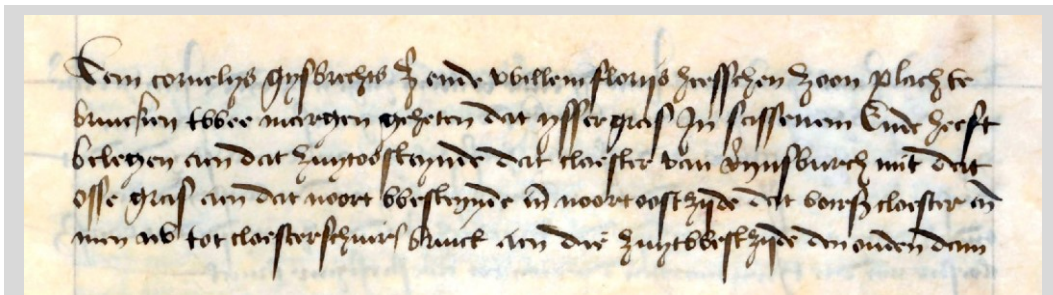 Item cornelys gysbrechts z ende willem florijs heesschen zoon plach te
brucken twee mergen geheten dat ysser gras In sassenem Ende heeft
belegen aen dat zuytoosteynde dat cloester van Rynsburch mit dat
osse gras aen dat noort westeynde en noortoostzijde dat voirs cloester en
men aw tot cloesters bruck aen die zuytwestzijde den ouden dam